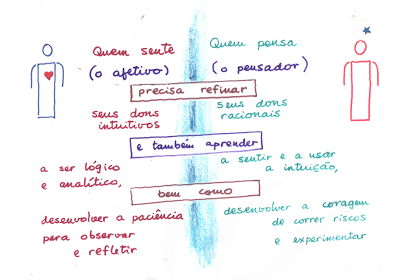 Quem sente
Quem pensa
(o afetivo)
(o pensador)
precisa refinar
seus dons
intuitivos
seus dons
racionais
e também aprender
a ser lógico
e analítico,
a sentir e a usar
a intuição,
bem como
desenvolver a paciência
para observar
e refletir
desenvolver a coragem
de correr riscos
e experimentar